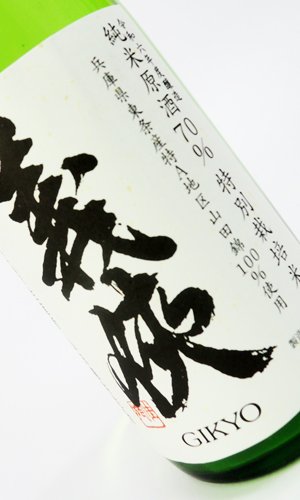 令和六年度醸造
純米原酒70% 特別栽培米
兵庫県東条産特A地区山田錦100%使用
義侠
GIKYO